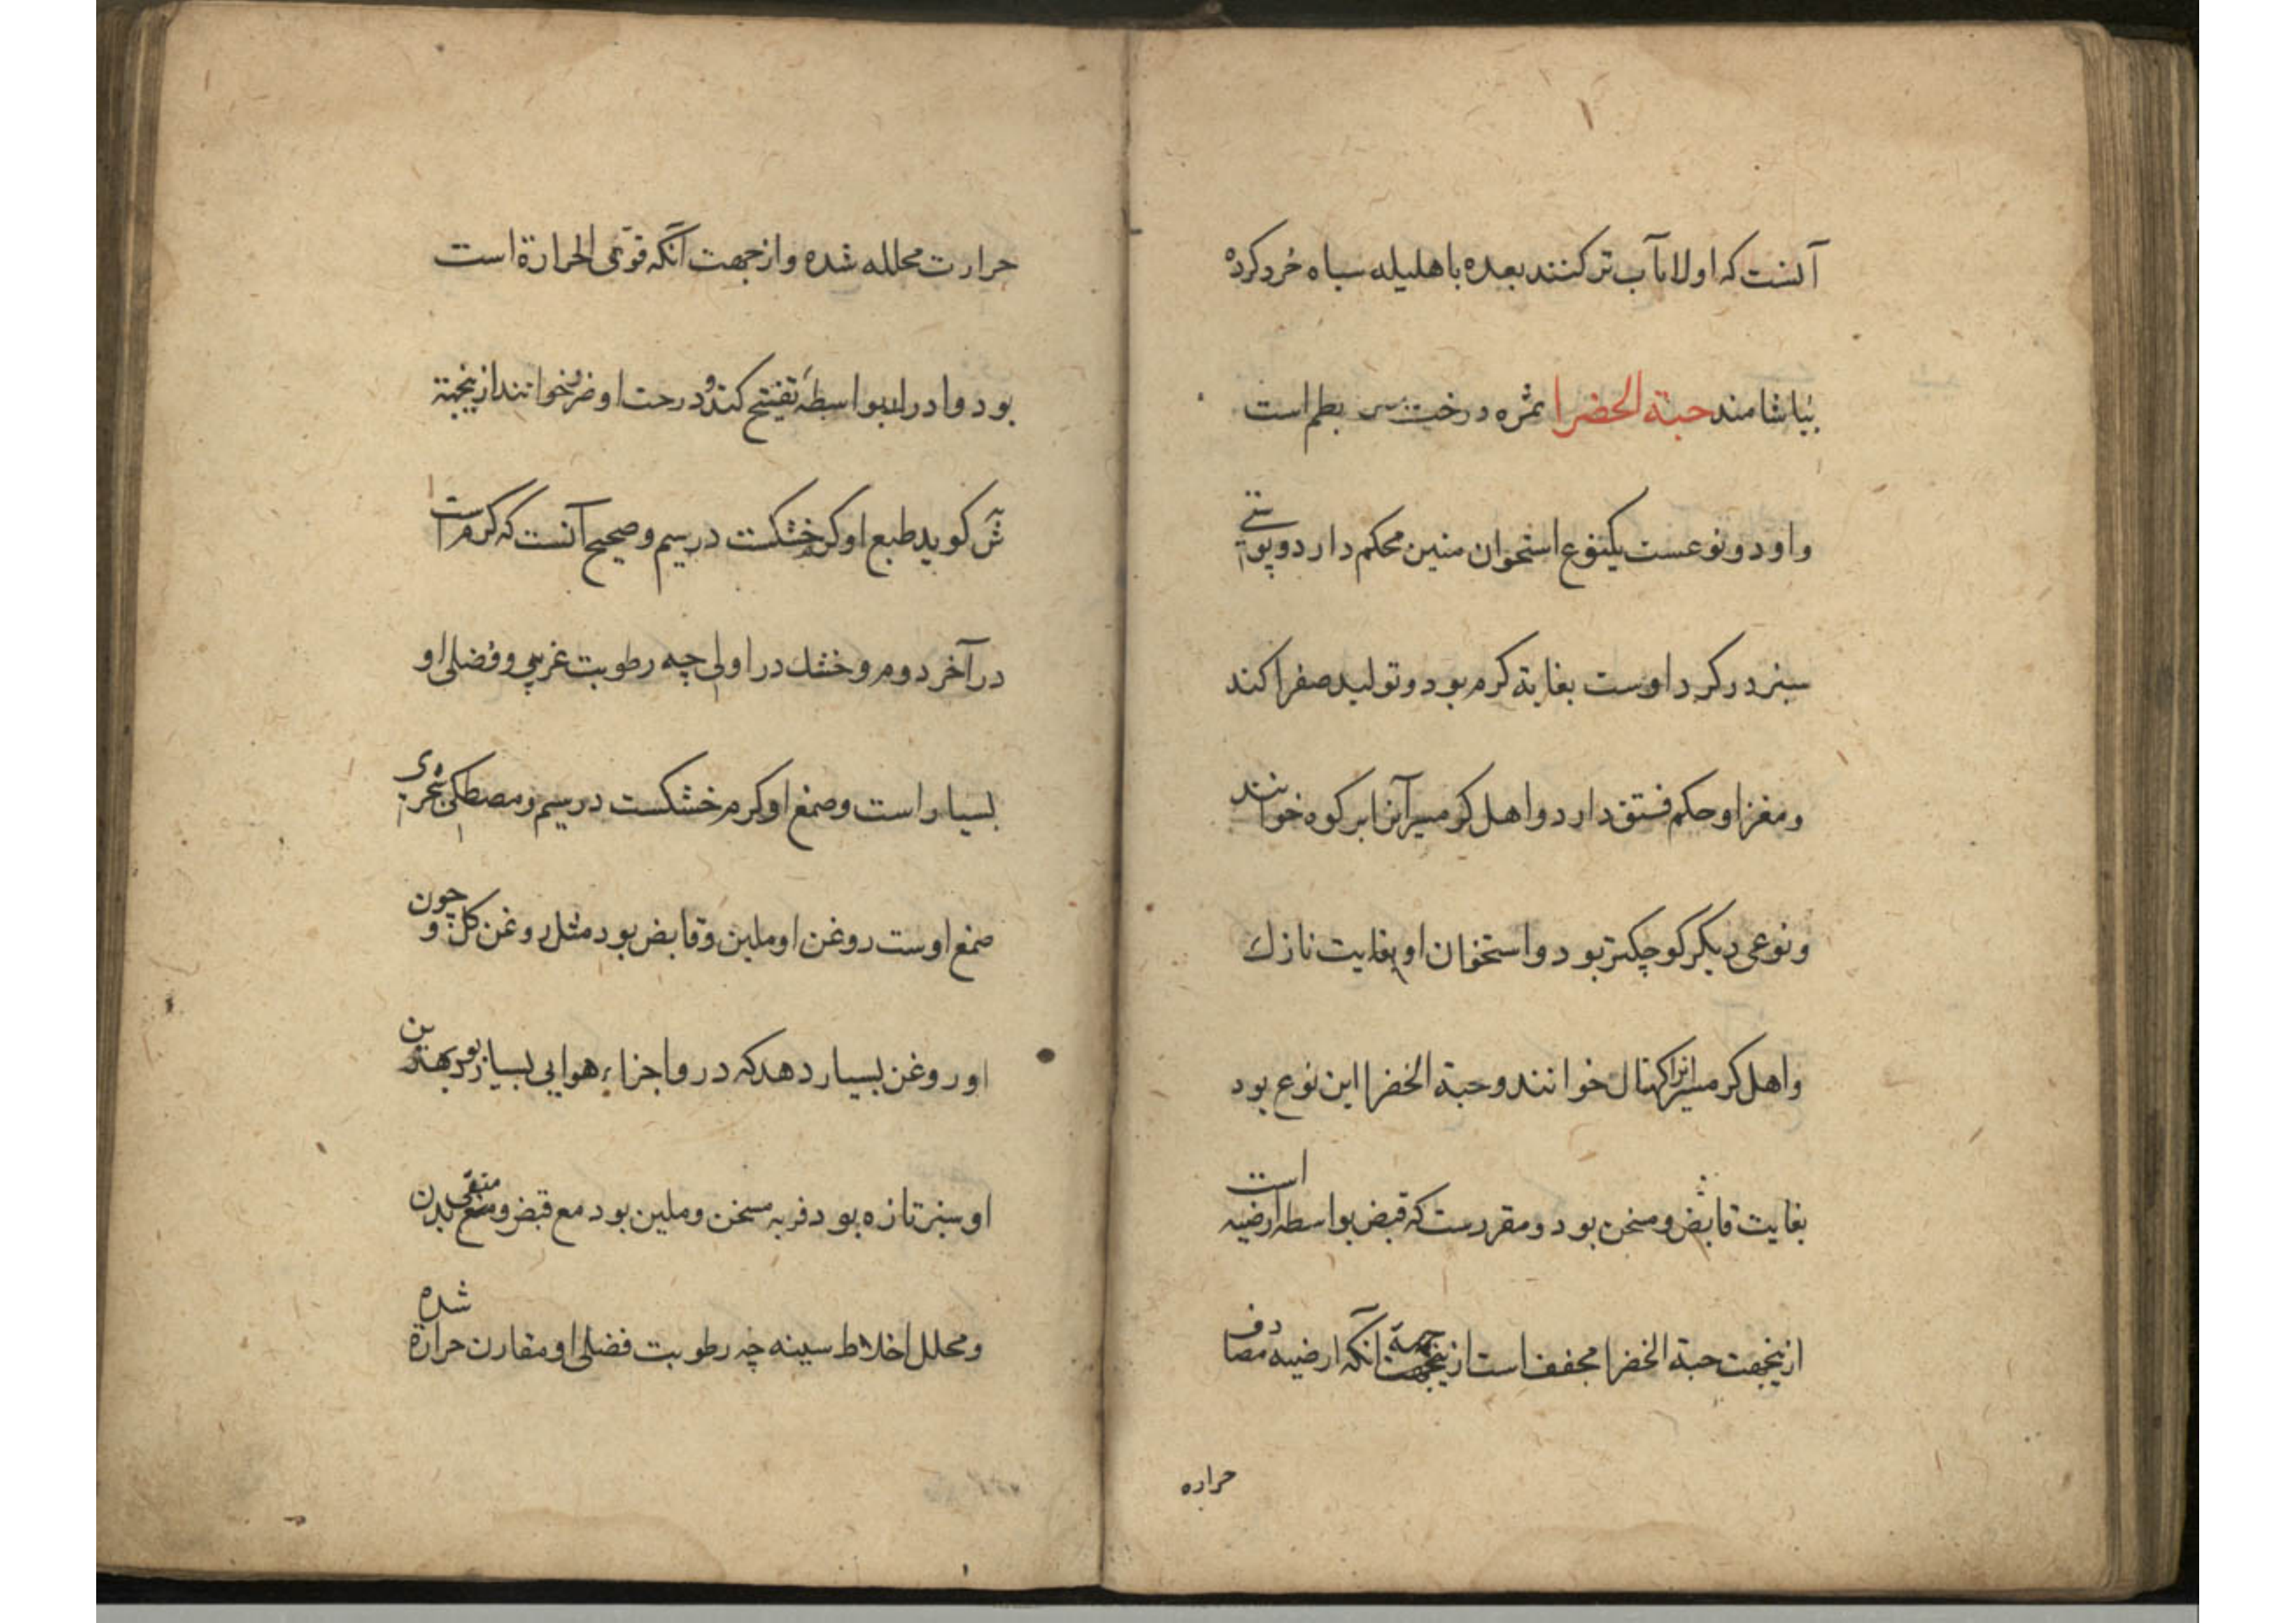 آنست که اولا بآب تر کنند بعده با هلیله سیاه خرد کرده
بیاشامند حبة الخضرا ثمره درخت بطم است
و او دو نوعست یکنوع استخوان محکم دارد و پوستی
سبز در کرد اوست بغایة کرم بود و تولید صفرا کند
و مغز او حکم فستق دارد و اهل کرمسیر آنرا بر کوه خوانند
و نوعی دیکر کوچکتر بود و استخوان او بغایت نازك
و اهل کرمسیر انرا خوانند و حبة الخضرا این نوع بود
بغایت قابض و مسخن بود و مقررست که قبض بواسطه ارضیه است
ازینجهت حبة الخضرا مجفف است ازینجهة انکه ارضیه مصادف
حراره
حرارت محلله شده و از جهت آنکه قوی الحرارة است
بود و ادرار بواسطهٔ تفتیح کند و درخت او ضرو خوانند ازینجهة
کوید طبع او کرم خشکست در سیم و صحیح آنست که کرم است
در آخر دوم و خشك در اولی چه رطوبت غریبی و فضلی او
بسیار است و صمغ او کرم خشکست در سیم و مصطکی
صمغ اوست روغن او ملین و قابض بود مثل روغن کل و چون
او روغن بسیار دهد که درو اجزاء هوایی بسیار بود بهترین
او سبز تازه بود فربه مسخن و ملین بود مع قبض و منقی بدن
و محلل اخلاط سینه چه رطوبت فضلی او مقارن حرارة شده